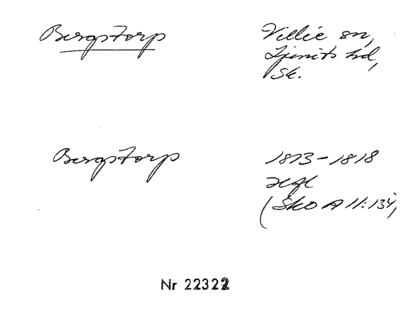 Bergstorp
Villie sn,
Ljunits hd,
Sk.
Bergstorp
1813-1818
Hfl
(SkO A II:134,
Nr 22322